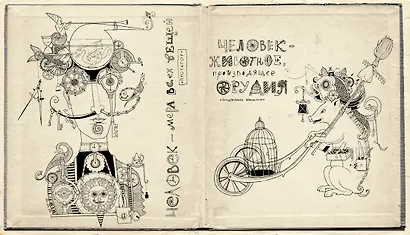 ЧЕЛОВЕК – МЕРА ВСЕХ ВЕЩЕЙ
ЧЕЛОВЕК –
ЖИВОТНОЕ,
производящее
ОРУДИЯ